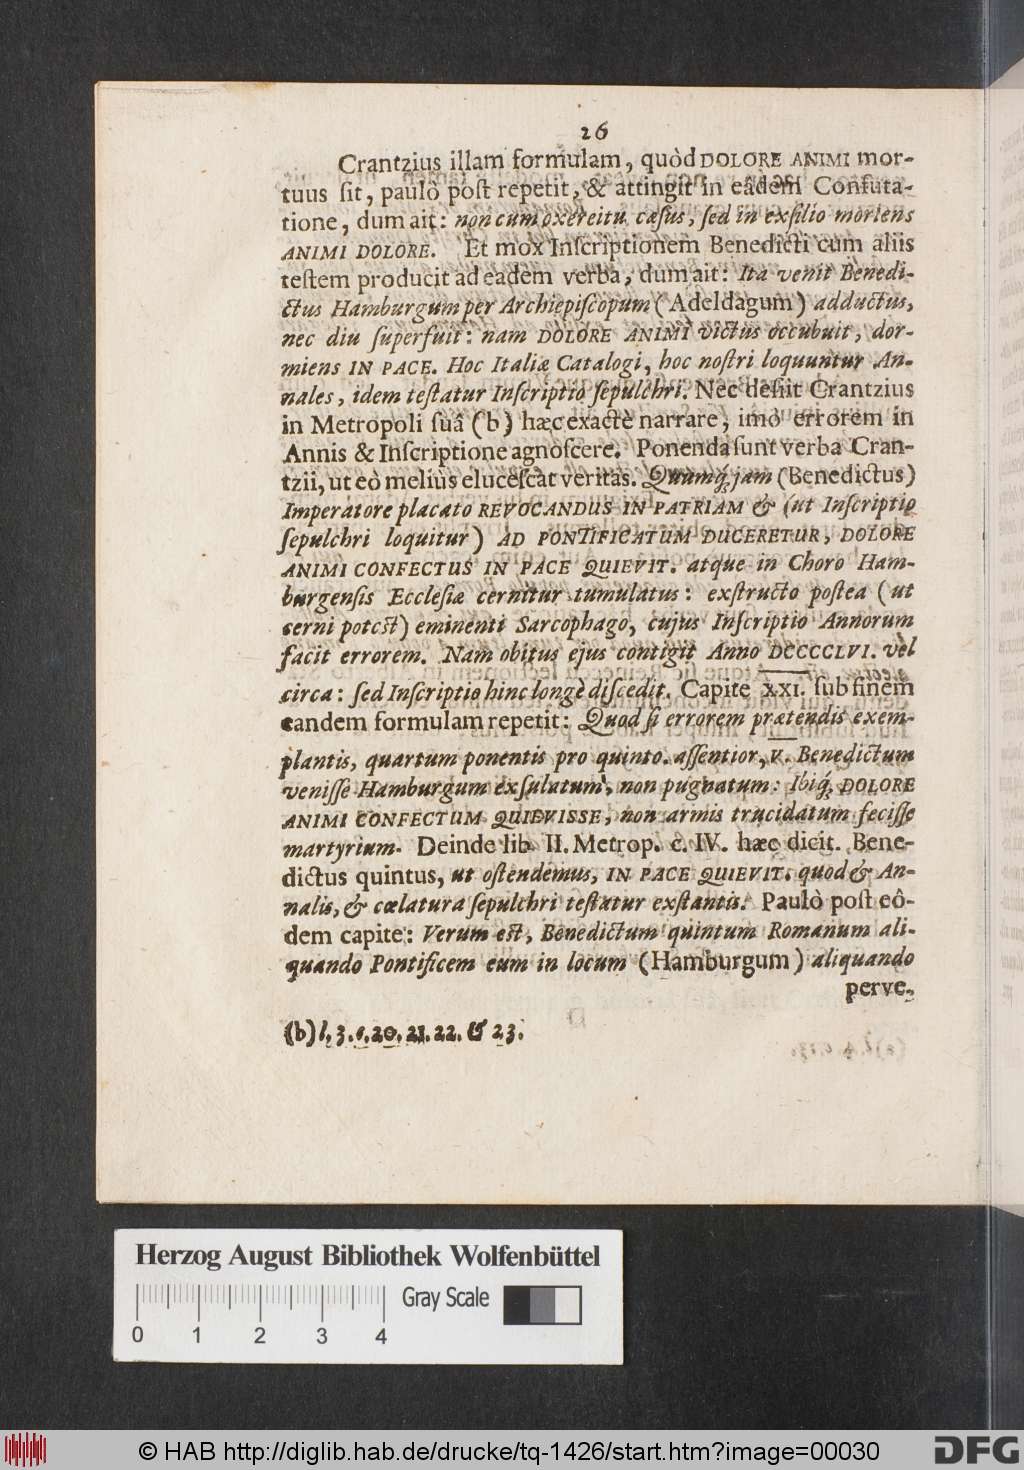 26
Crantzius illam formulam, quòd DOLORE ANIMI mor-
tuus ſit, paulò poſt repetit, & attingit in eâdem Confuta-
tione, dum ait: non cum exercitu cæſus, ſed in exſilio moriens
ANIMI DOLORE. Et mox Inſcriptionem Benedicti cum aliis
teſtem producit ad eadem verba, dum ait: Ita venit Benedi-
ctus Hamburgum per Archiepiſcopum (Adeldagum) adductus,
nec diu ſuperfuit: nam DOLORE ANIMI victus occubuit, dor-
miens IN PACE. Hoc Italiæ Catalogi, hoc noſtri loquuntur An-
nales, idem teſtatur Inſcriptio ſepulchri. Nec deſiit Crantzius
in Metropoli ſuâ (b) hæc exactè narrare, imò errorem in
Annis & Inſcriptione agnoſcere. Ponenda ſunt verba Cran-
tzii, ut eò meliùs eluceſcat veritas. Quumq́; jam (Benedictus)
Imperatore placato REVOCANDUS IN PATRIAM & (ut Inſcriptio
ſepulchri loquitur) AD PONTIFICATUM DUCERETUR, DOLORE
ANIMI CONFECTUS IN PACE QUIEVIT. atque in Choro Ham-
burgenſis Eccleſiæ cernitur tumulatus: exſtructo poſtea (ut
cerni poteſt) eminenti Sarcophago, cujus Inſcriptio Annorum
facit errorem. Nam obitus ejus contigit Anno DCCCCLVI. vel
circa: ſed Inſcriptio hinc longè diſcedit. Capite XXI. ſub finem
eandem formulam repetit: Quod ſi errorem prætendis exem-
plantis, quartum ponentis pro quinto. aſſentior, V. Benedictum
veniſſe Hamburgum exſulatum, non pugnatum: Ibiq́; DOLORE
ANIMI CONFECTUM QUIEVISSE, non armis trucidatum feciſſe
martyrium. Deinde lib. II. Metrop. c. IV. hæc dicit. Bene-
dictus quintus, ut oſtendemus, IN PACE QUIEVIT. quod & An-
nalis, & cælatura ſepulchri teſtatur exſtantis. Paulò poſt eô-
dem capite: Verum eſt, Benedictum quintum Romanum ali-
quando Pontificem eum in locum (Hamburgum) aliquando
perve-
(b) l. 3. c. 20. 21. 22. & 23.
Herzog August Bibliothek Wolfenbüttel
Gray Scale
0 1 2 3 4
© HAB http://diglib.hab.de/drucke/tq-1426/start.htm?image=00030
DFG